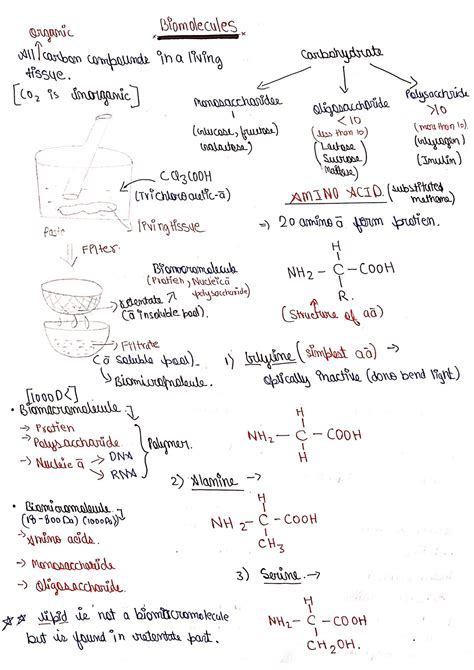 Biomolecules.
organic
All carbon compounds in a living
tissue.
[CO2 is inorganic]
CCl3COOH
(Trichloroacetic-ā)
living tissue
paste
Filter.
Biomacromolecule
(Protien, Nucleic ā
polysaccharide)
Retentate
(ā insoluble pool).
Filtrate
(ā soluble pool).
Biomicromolecule.
[1000D<]
• Biomacromolecule
→ Protien
→ Polysaccharide
→ Nucleic ā
DNA
RNA
Polymer.
• Biomicromolecule
(18-800Da) (1000Da>)
→ Amino acids.
→ Monosaccharide
→ Oligosaccharide.
lipid is not a biomacromolecule
but is found in retentate part.
Carbohydrate
Monosaccharides
(Glucose, fructose)
Galactose)
Oligosaccharide
<10
(less than 10)
(Lactose
Sucrose
maltose)
Polysaccharide
>10
(more than 10)
(Glycogen)
(Inulin)
AMINO ACID (substituted
methane)
⇒ 20 amino ā form protien.
H
NH2 – C – COOH
R.
(Structure of aā)
1) Glycine (simplest aā) →
optically inactive (dono bend light)
H
NH2 – C – COOH
H
2) Alanine →
H
NH2 – C – COOH
CH3
3) Serine. →
H
NH2 – C – COOH
CH2OH.